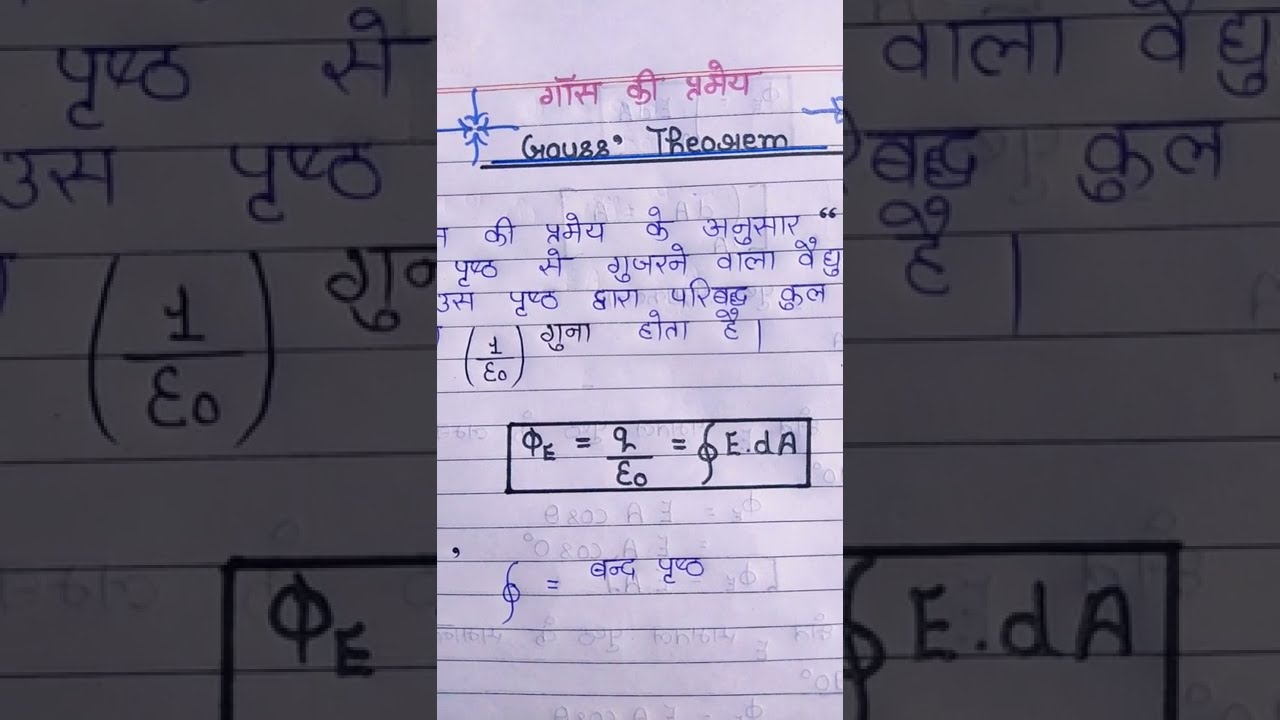 गॉस की प्रमेय
Gauss' Theorem
की प्रमेय के अनुसार “
पृष्ठ से गुजरने वाला वैद्यु
उस पृष्ठ द्वारा परिबद्ध कुल
(1/ε0) गुना होता है।
ΦE = q/ε0 = ∮E.dA
,
∮ = बन्द पृष्ठ